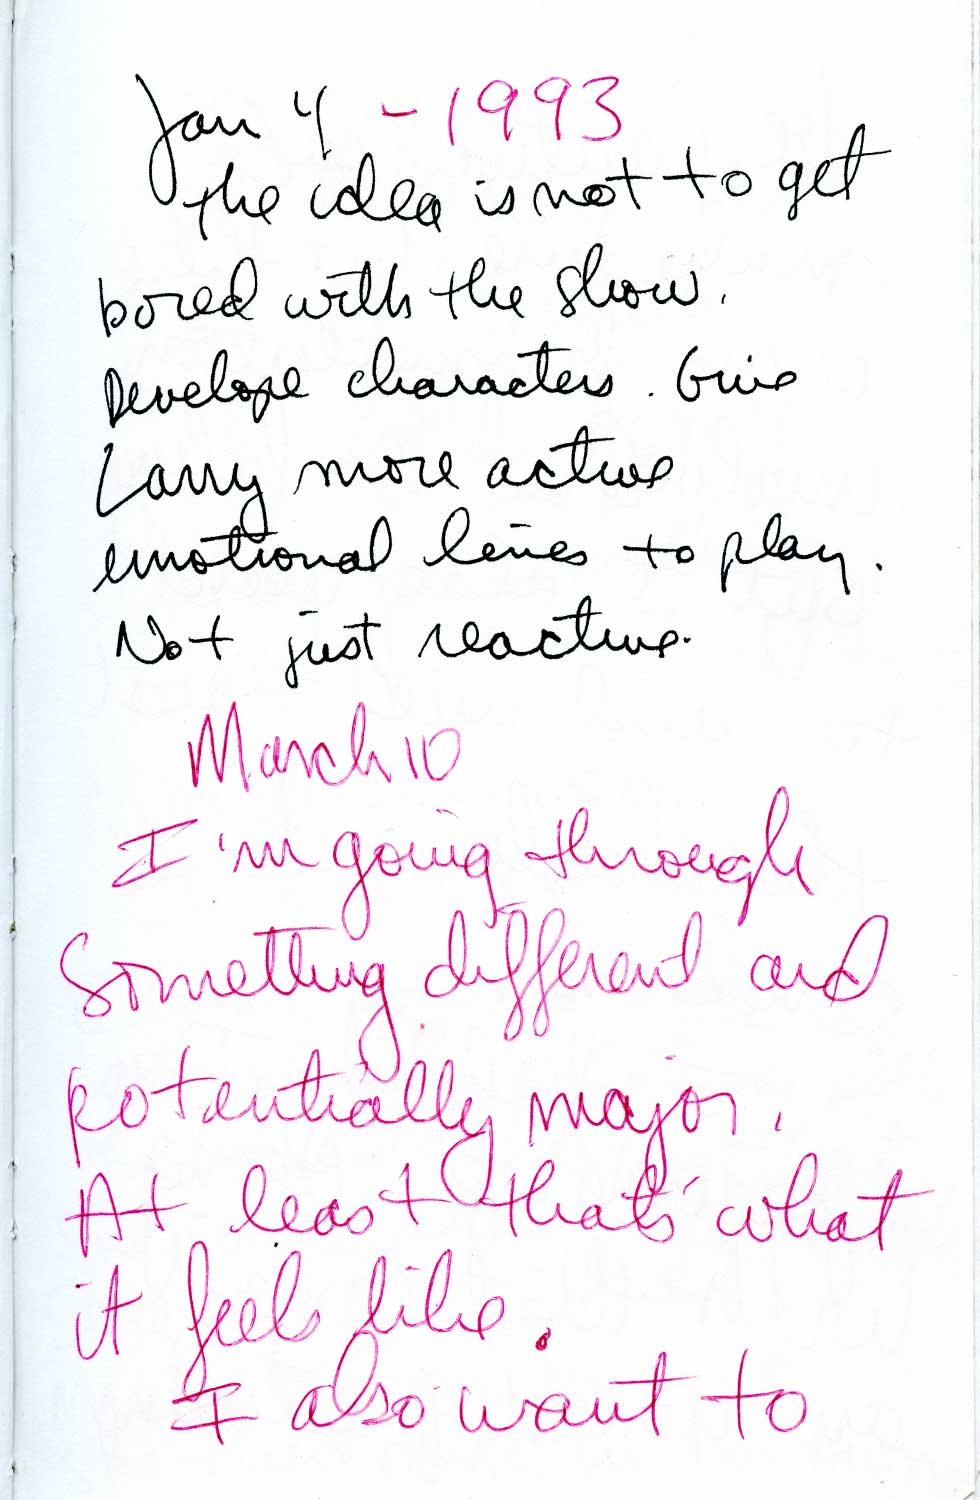 Jan 4 - 1993
the idea is not to get
bored with the show.
Develope characters. Give
Larry more active
emotional lines to play.
Not just reactive.
March 10
I'm going through
Something different and
potentially major.
At least that's what
it feels like.
I also want to